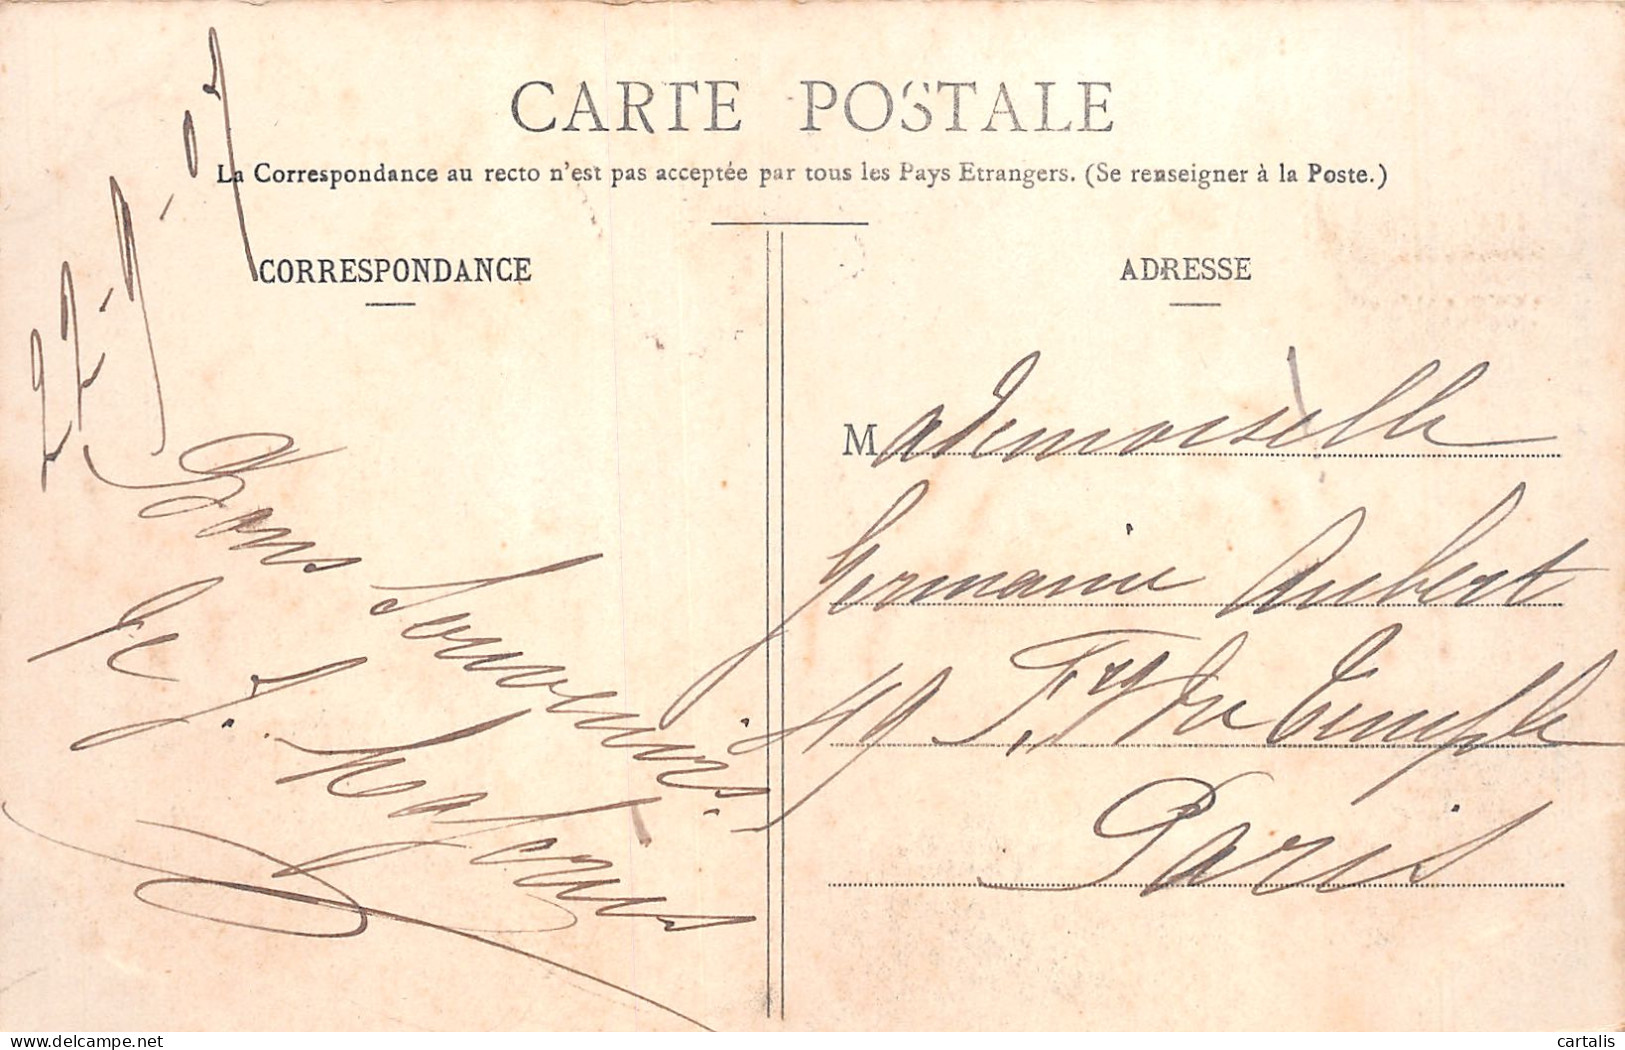 CARTE POSTALE
La Correspondance au recto n'est pas acceptée par tous les Pays Etrangers. (Se renseigner à la Poste.)
CORRESPONDANCE
22-9-07
Bons Souvenirs.
de J.
ADRESSE
Mademoiselle
Germaine Aubert
49 Fg du Temple
Paris
delcampe.net
cartalis